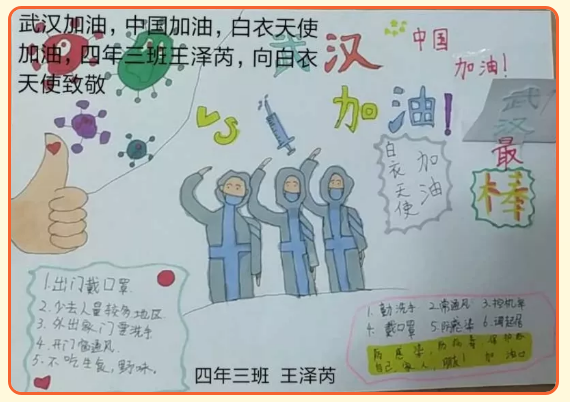 武汉加油，中国加油，白衣天使
加油，四年三班王泽芮，向白衣
天使致敬
武汉
中国
加油!
加油!
VS
武汉
最
棒
白衣天使
加油
1.出门戴口罩.
2.少去人量较多地区
3.外出家门要洗手
4.开门常通风.
5.不吃生食,野味.
1.勤洗手 2.常通风 3.
4.戴口罩 5.防感染 6.
自己 家人 朋友! 加油
四年三班 王泽芮